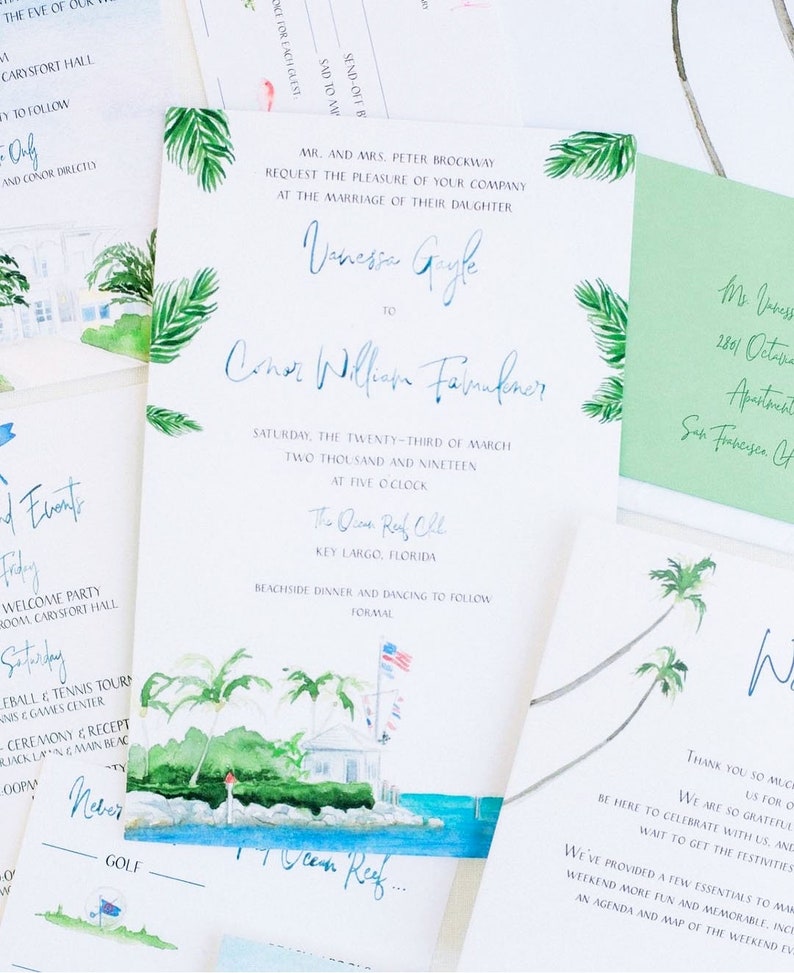 THE EVE OF OUR
CARYSFORT HALL
TO FOLLOW
Only
AND CONOR DIRECTLY
FOR EACH GUEST:
SEND-OFF
SAD TO
MR. AND MRS. PETER BROCKWAY
REQUEST THE PLEASURE OF YOUR COMPANY
AT THE MARRIAGE OF THEIR DAUGHTER
Vanessa Gayle
TO
Conor William Famulener
SATURDAY, THE TWENTY-THIRD OF MARCH
TWO THOUSAND AND NINETEEN
AT FIVE O'CLOCK
The Ocean Reef Club
KEY LARGO, FLORIDA
BEACHSIDE DINNER AND DANCING TO FOLLOW
FORMAL
Ms. Vaness
2801 Octavia
Apartment
San Francisco, CA
Events
Friday
WELCOME PARTY
ROOM, CARYSFORT HALL
Saturday
& TENNIS TOURN
TENNIS & GAMES CENTER
– CEREMONY & RECEPT
LAWN & MAIN BEACH
Never
GOLF
Ocean Reef...
THANK YOU SO MUCH
US FOR
WE ARE SO GRATEFUL
BE HERE TO CELEBRATE WITH US, AND
WAIT TO GET THE FESTIVITIES
WE'VE PROVIDED A FEW ESSENTIALS TO MAKE
WEEKEND MORE FUN AND MEMORABLE,
AN AGENDA AND MAP OF THE WEEKEND